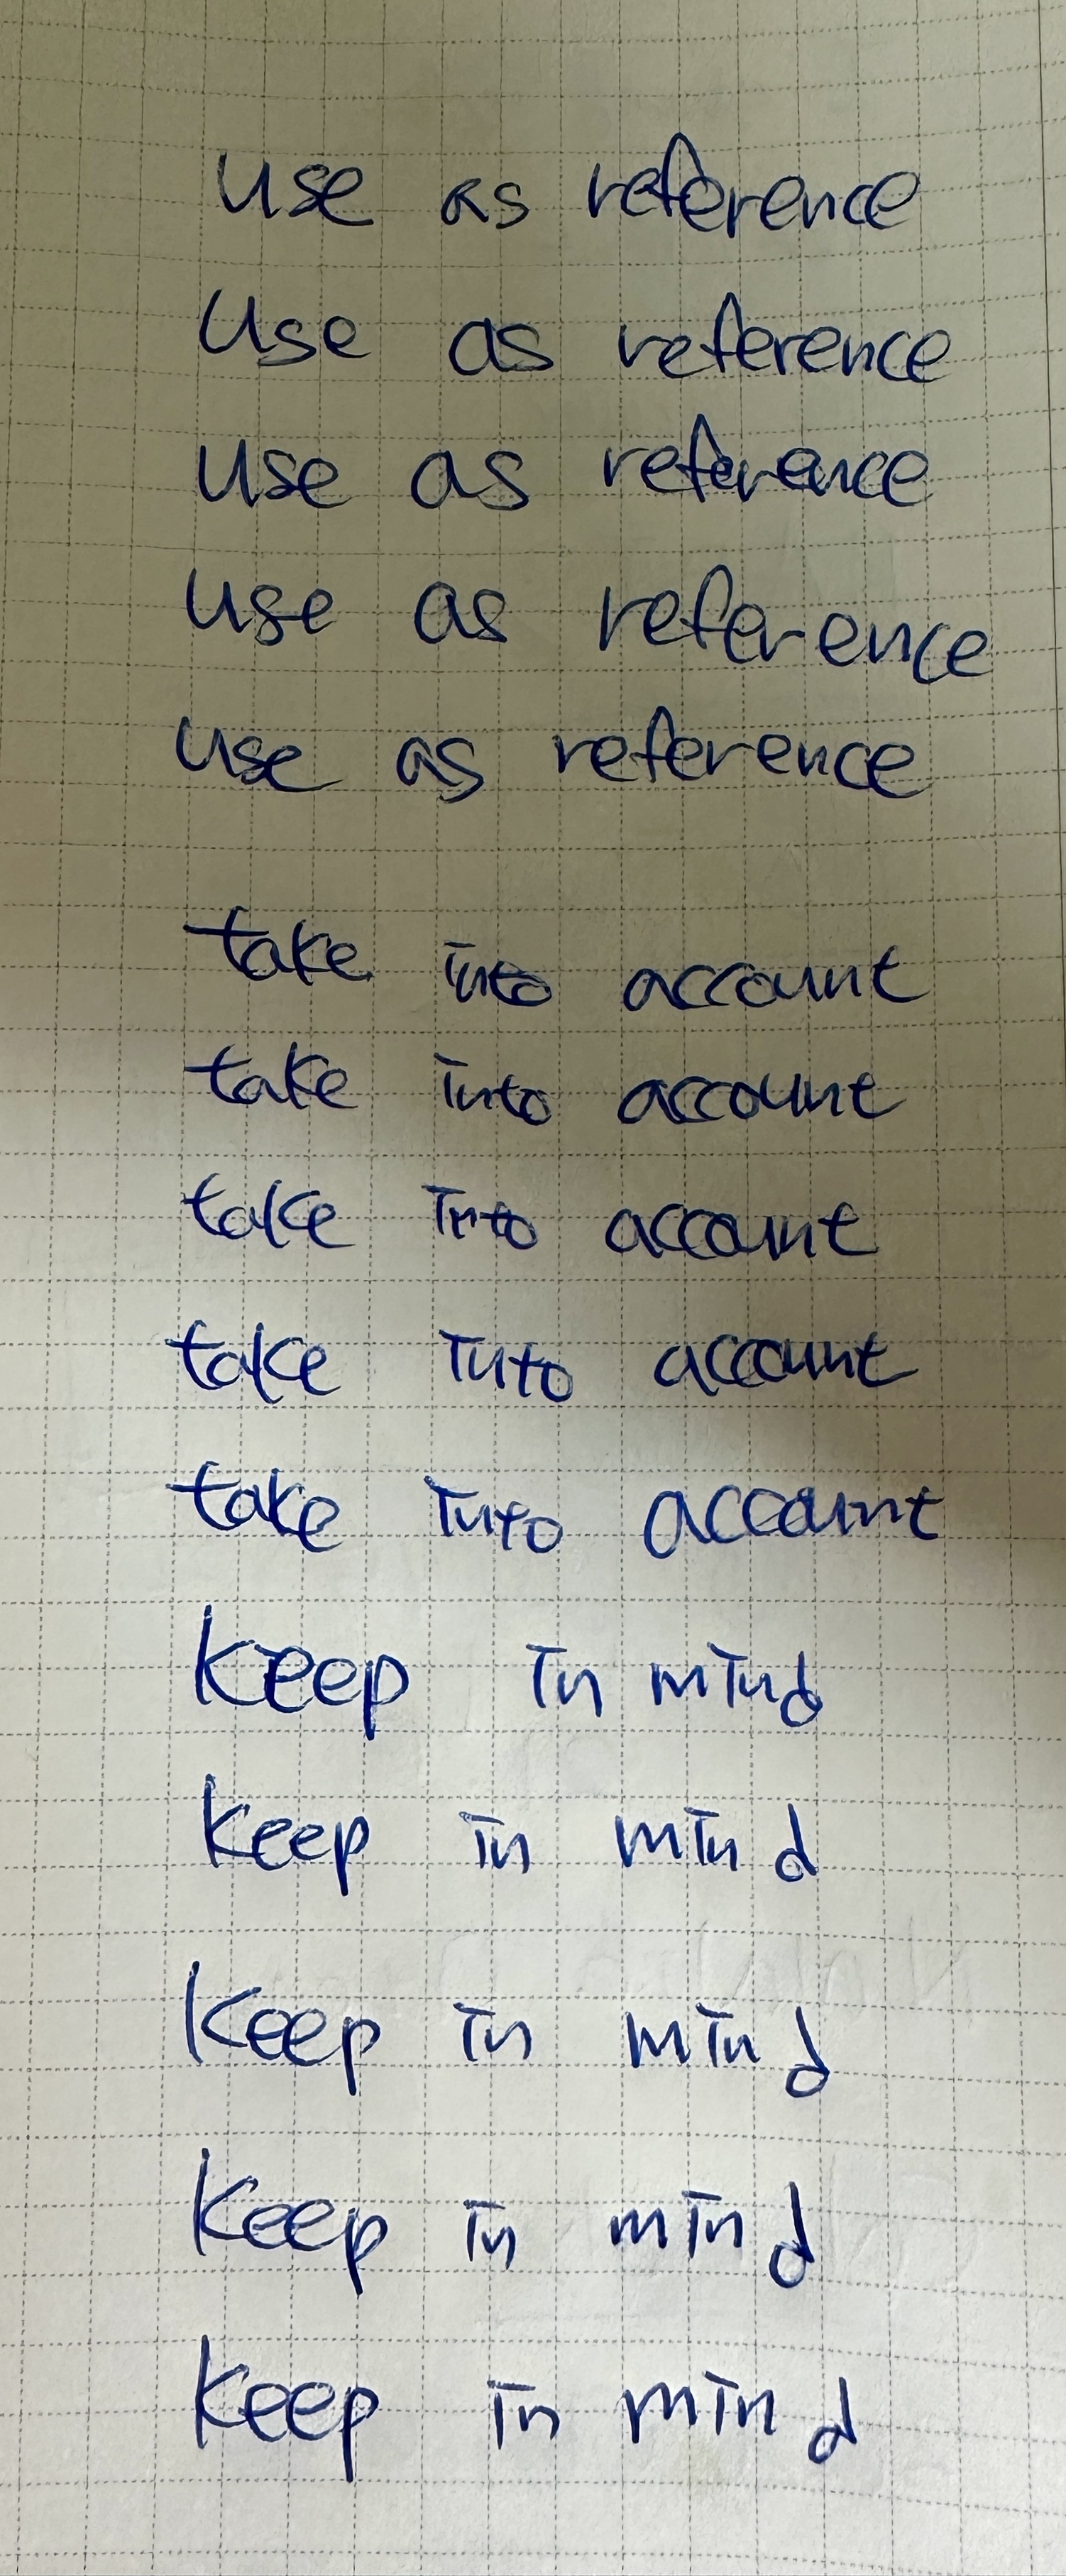 use as reference
Use as reference
use as reference
use as reference
use as reference
take into account
take into account
take into account
take into account
take into account
keep in mind
keep in mind
keep in mind
keep in mind
keep in mind